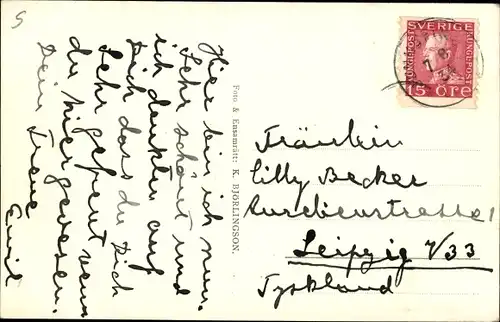 5
Hier bin ich nun.
Sehr schönt und
ich denkten auf
Dich dass du Dich
Sehr gefreut wenn
du hier gewesen.
Dein Freue
Emil
Foto & Ensamrätt: K. BJÖRLINGSON.
SVERIGE
KUNGLPOST
KUNGLPOST
15 ÖRE
7.8
Fräulein
Cilly Becker
Aurelienstrasse 1
Leipzig W33
Tyskland